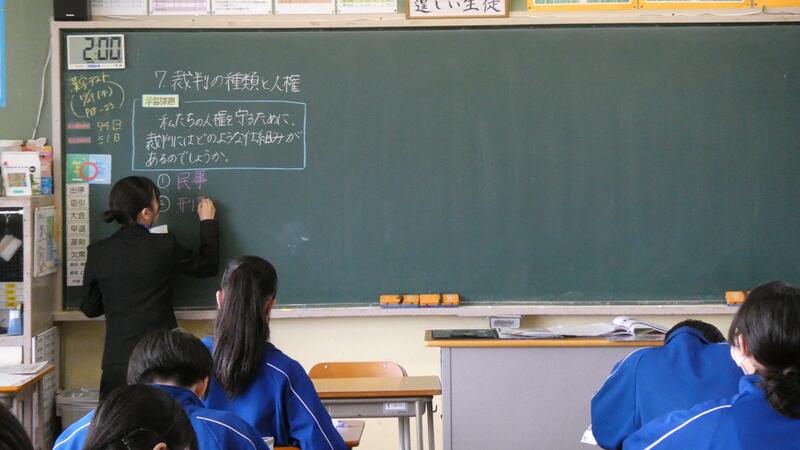 逞しい生徒
2:00
漢字テスト
P18-23
74日
51日
7. 裁判の種類と人権
学習課題
私たちの人権を守るために、
裁判にはどのような仕組みが
あるのでしょうか。
① 民事
② 刑
出停
忌引
大会
早退
遅刻
欠席